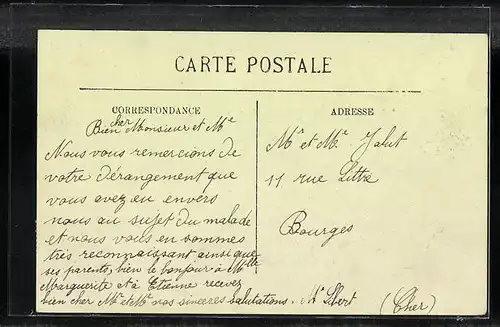 CARTE POSTALE
CORRESPONDANCE
Bien cher Monsieur et Me
Nous vous remercions de
votre dérangement que
vous avez eu envers
nous au sujet du malade
et nous vous en sommes
très reconnaissant ainsi que
ses parents, bien le bonjour à Melle
Marguerite et à Etienne recevez
bien cher Mr et Me nos sincères salutations. Mr
ADRESSE
Mr et Me Jalut
11 rue Littre
Bourges
(Cher)